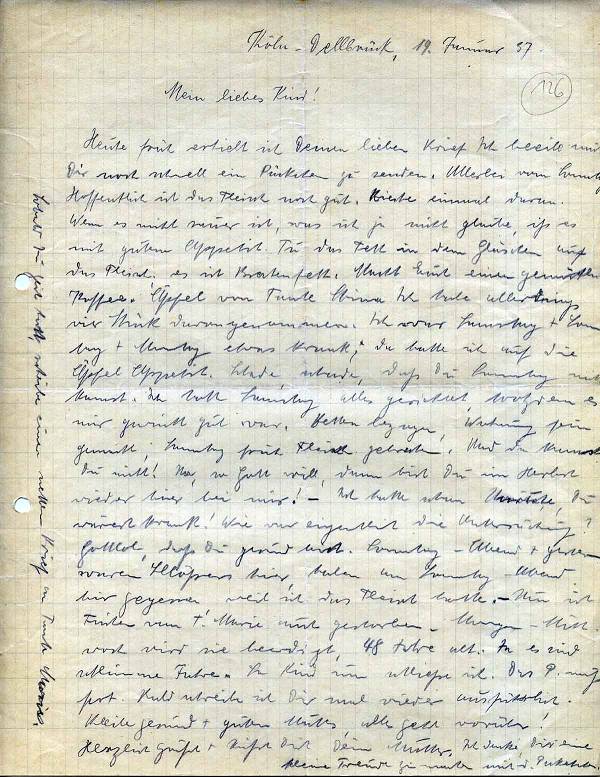 Köln-Dellbrück, 19. Januar 37.
126
Mein liebes Kind!
Heute früh erhielt ich Deinen lieben Brief. Ich beeile mich
Dir noch schnell ein Päckchen zu senden. Allerlei vom Sonntag
Hoffentlich ist das Fleisch noch gut. Rieche einmal daran.
Wenn es nicht sauer ist, was ich ja nicht glaube, iss es
mit gutem Appetit. Tu das Fett in dem Gläschen auf
das Fleisch, es ist Bratenfett. Macht Euch einen gemütlichen
Kaffee. Äpfel von Tante Ich habe allerdings
vier Stück davon genommen. Ich war Samstag + Sonn
tag + Montag etwas krank, da hatte ich auf die
Äpfel Appetit. Schade, schade, dass Du Sonntag nicht
kamst. Ich hatte Samstag alles gerichtet, trotzdem es
mir garnicht gut war. Betten bezogen, Wohnung fein
gemacht, Sonntag früh Fleisch gebraten. Und da kamst
Du nicht! Na, so Gott will, dann bist Du im Herbst
wieder hier bei mir! - Ich hatte schon Du
wärest krank! Wie war eigentlich die Untersuchung?
Gottlob, dass Du gesund bist. Sonntag-Abend + gestern
waren hier, haben am Sonntag-Abend
hier gegessen weil ich das Fleisch hatte. - Nun ist
von T. Marie auch gestorben. Morgen - Mitt
woch wird sie beerdigt, 48 Jahre alt. Ja es sind
schlimme Jahre. So Kind nun schliesse ich. Das P. muss
fort. Bald schreibe ich Dir mal wieder ausführlich.
Bleibe gesund + guten Muts, alles geht vorüber!
Herzlich grüsst + küsst Dich Deine Mutter. Ich denke Dir eine
kleine Freude zu machen mit d. Päckchen.
Sobald Du Zeit hast, schreibe einen netten Brief an Tante Maria.